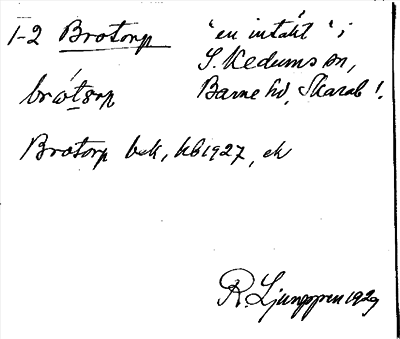 1-2 Brotorp "en intäkt" i
S. Kedums sn,
Barne hd, Skarab l.
brótorp
Brotorp bek, kb 1927, ek
R. Ljunggren 1929